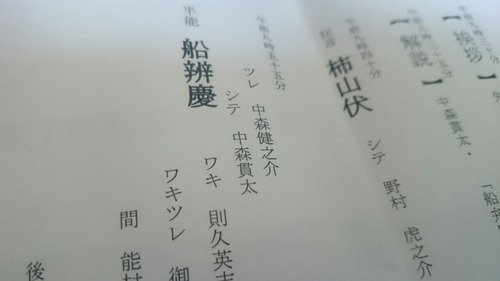 【挨拶】
午前九時三十分
【解説】
中森貫太・
「船弁
午前九時四十分
狂言 柿山伏
シテ 野村 虎之介
午前九時五十五分
半能 船辨慶
ツレ 中森健之介
シテ 中森貫太
ワキ 則久英志
ワキツレ 御
間 能村
後